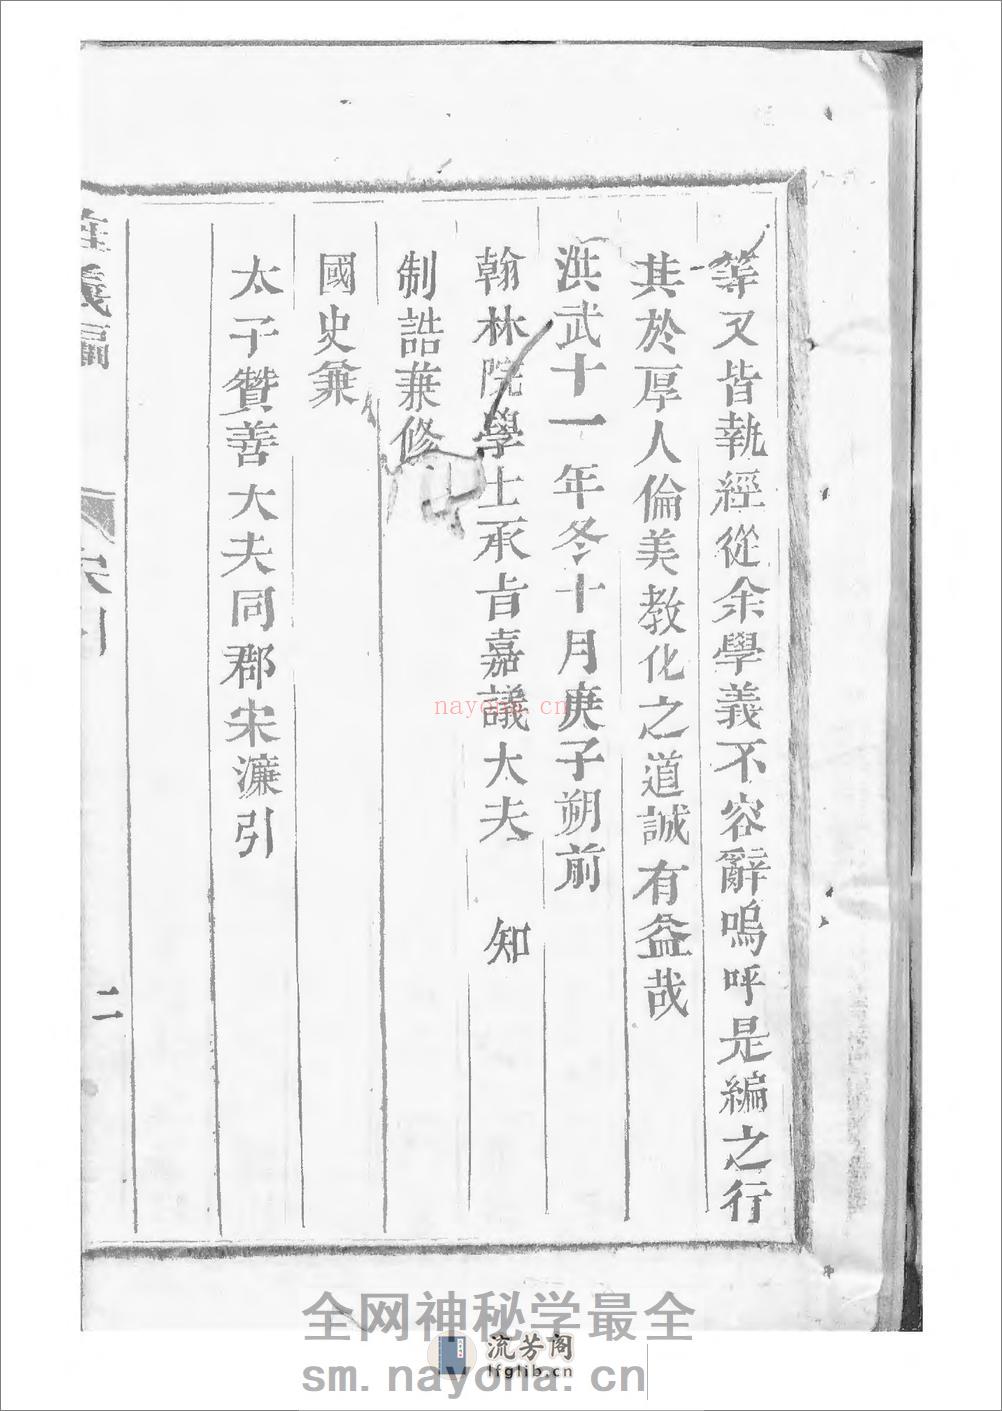 等又皆執經從余學義不容辭嗚呼是編之行
其於厚人倫美教化之道誠有益哉
洪武十一年冬十月庚子朔前
翰林院學士承旨嘉議大夫 知
制誥兼修
國史兼
太子贊善大夫同郡宋濂引
二
nayona.cn
全网神秘学最全
流芳阁
lfglib.cn
sm.nayona.cn